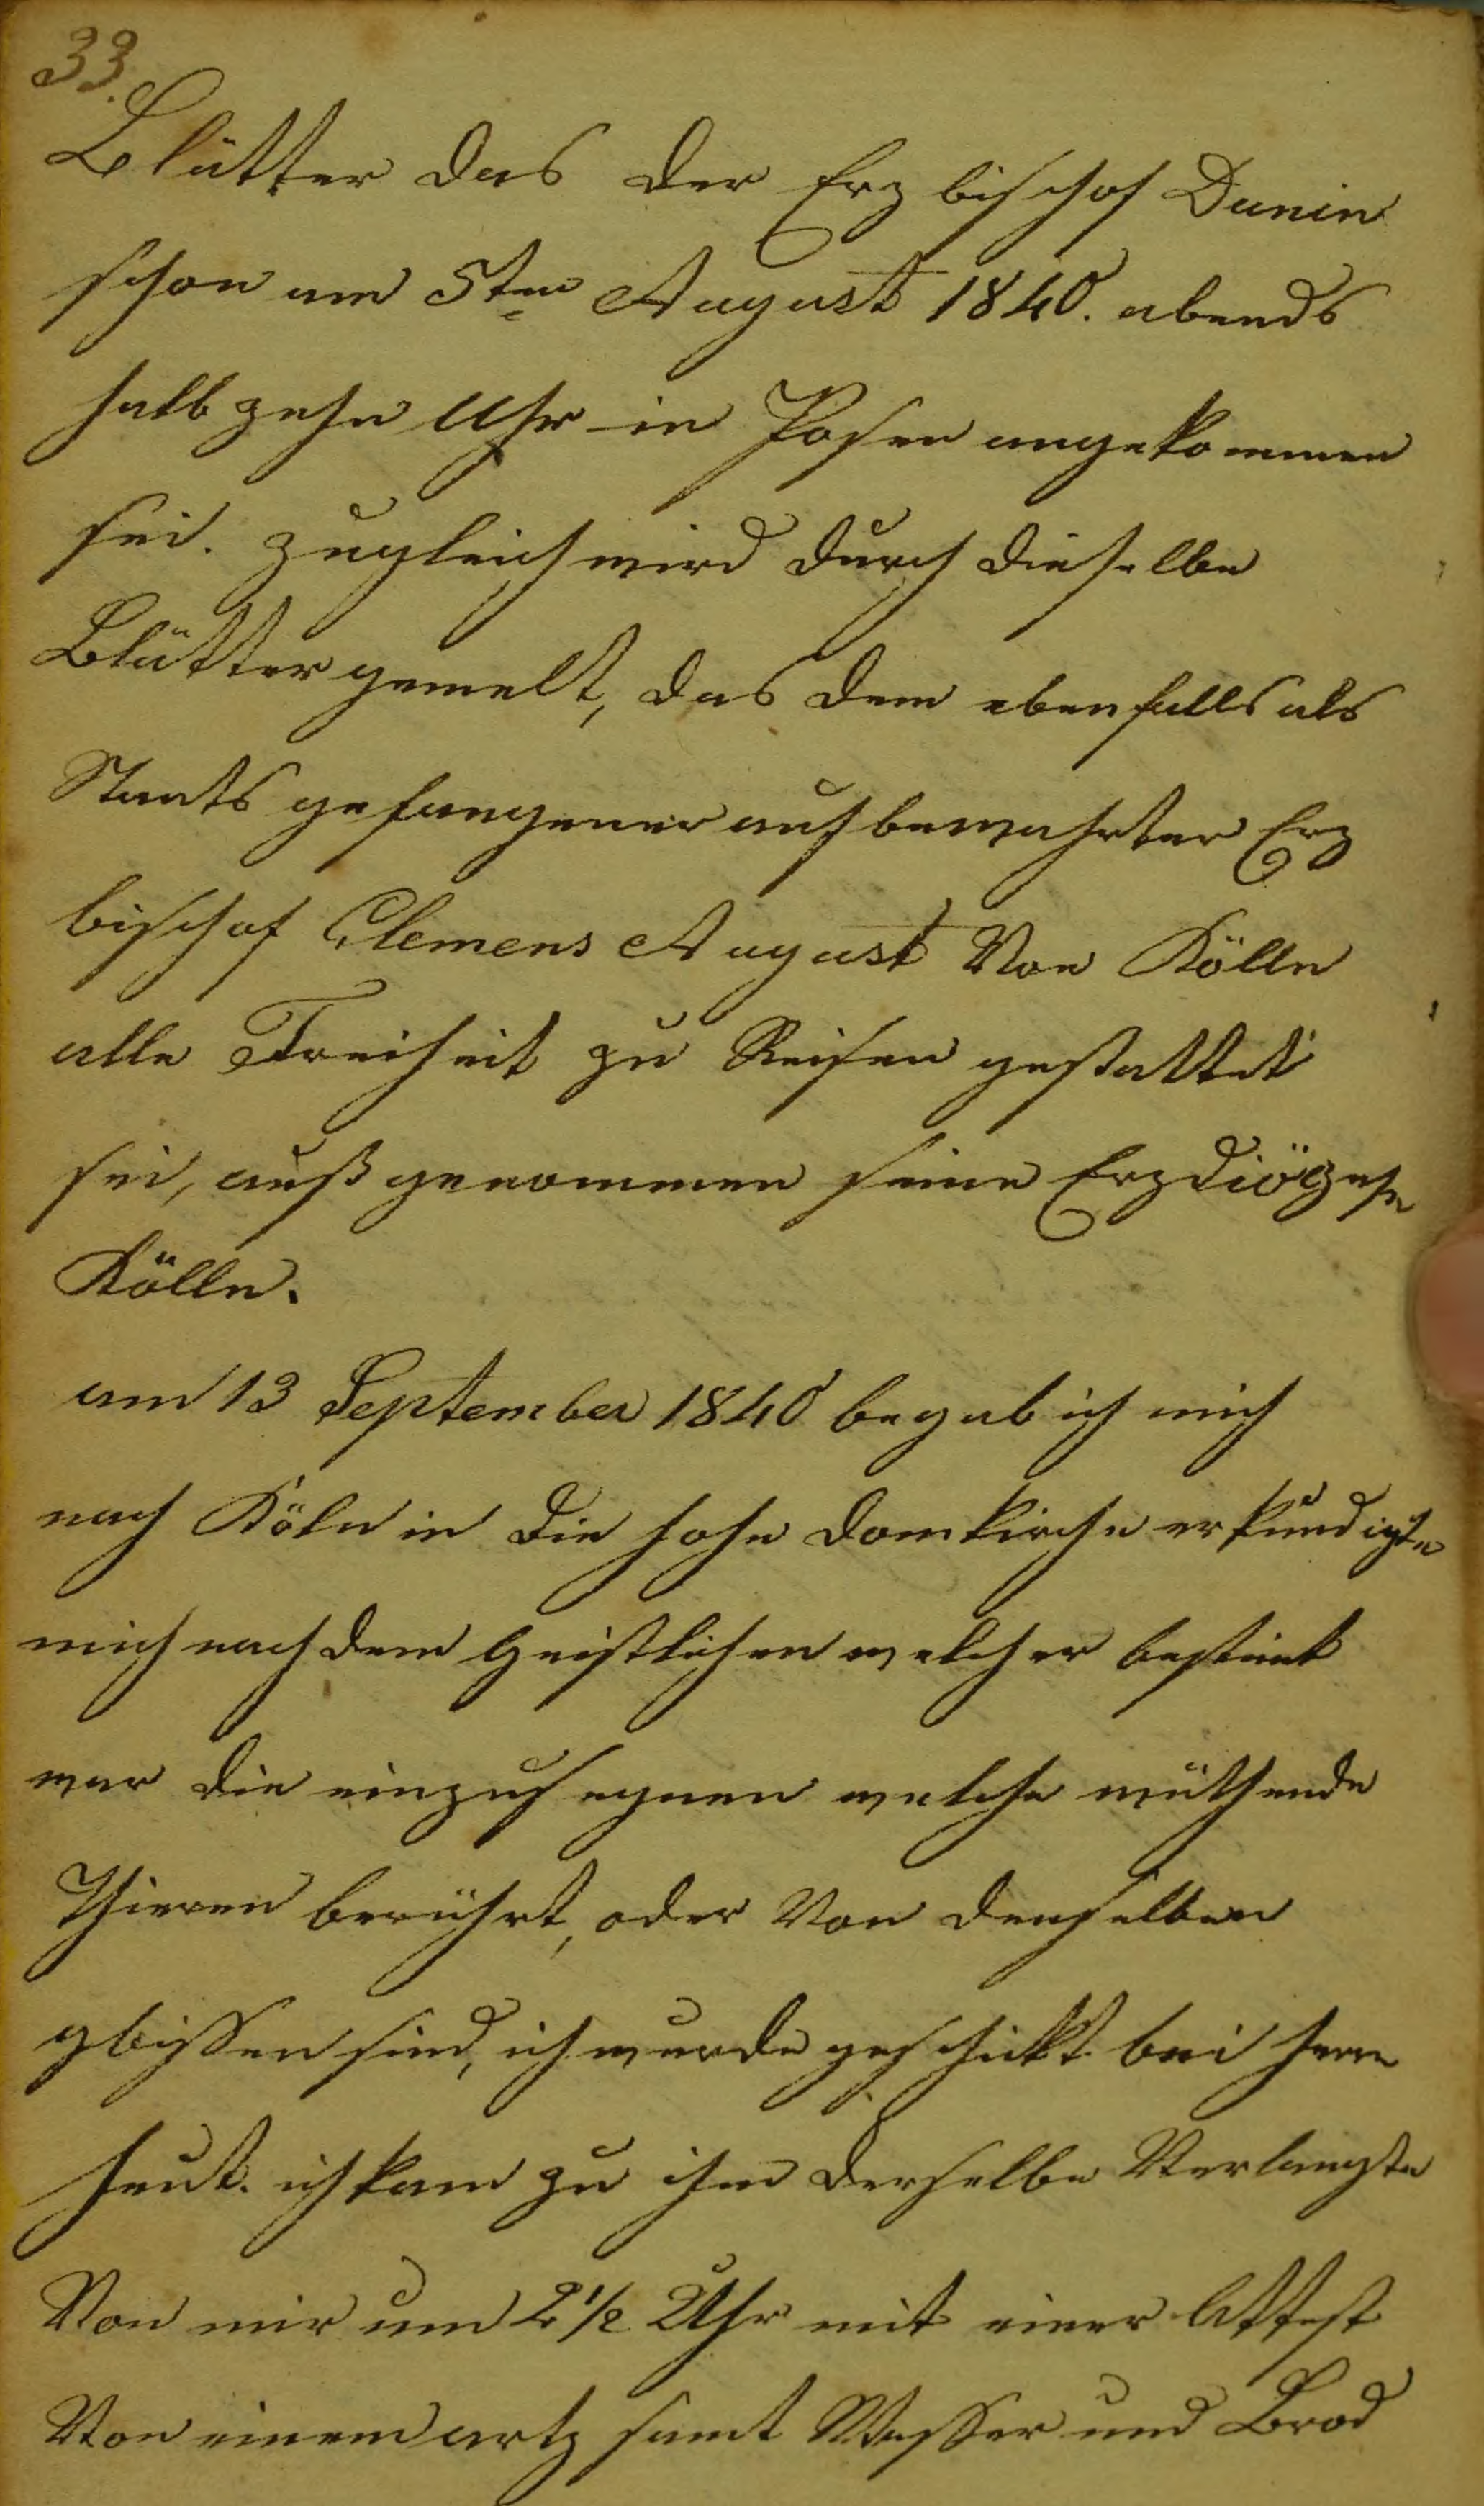 33.
Blätter das der Erz bischof Dunin
schon am 5ten August 1840. abends
halb zehn Uhr in Posen angekommen
sei. zugleich wird durch dieselbe
Blätter gemelt, das dem ebenfalls als
Staats gefangener aufbewahrter Erz
bischof Clemens August Von Kölln
alle Freiheit zu Reisen gestattet
sei, außgenommen seine Erzdiözese
Kölln.
am 13 September 1840 begab ich mich
nach Köln in die hohe Domkirche erkundigte
mich nach dem Geistlichen welcher bestimt
war die einzusegnen welche wüthende
Thieren berührt, oder Von denselben
gbissen sind, ich wurde geschickt bei herrn
heut. ich kam zu ihm derselbe Verlangte
Von mir um 2 1/2 Uhr mit einer Attest
Von einem artz samt Wasser und Brod